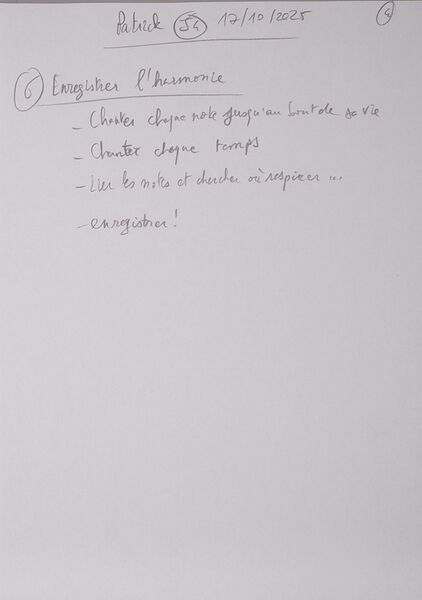 Patrick 54 17/10/2025
4
6 Enregistrer l'harmonie
- Chanter chaque note jusqu'au bout de sa vie
- Chanter chaque temps
- Lier les notes et chercher où respirer ...
- enregistrer !